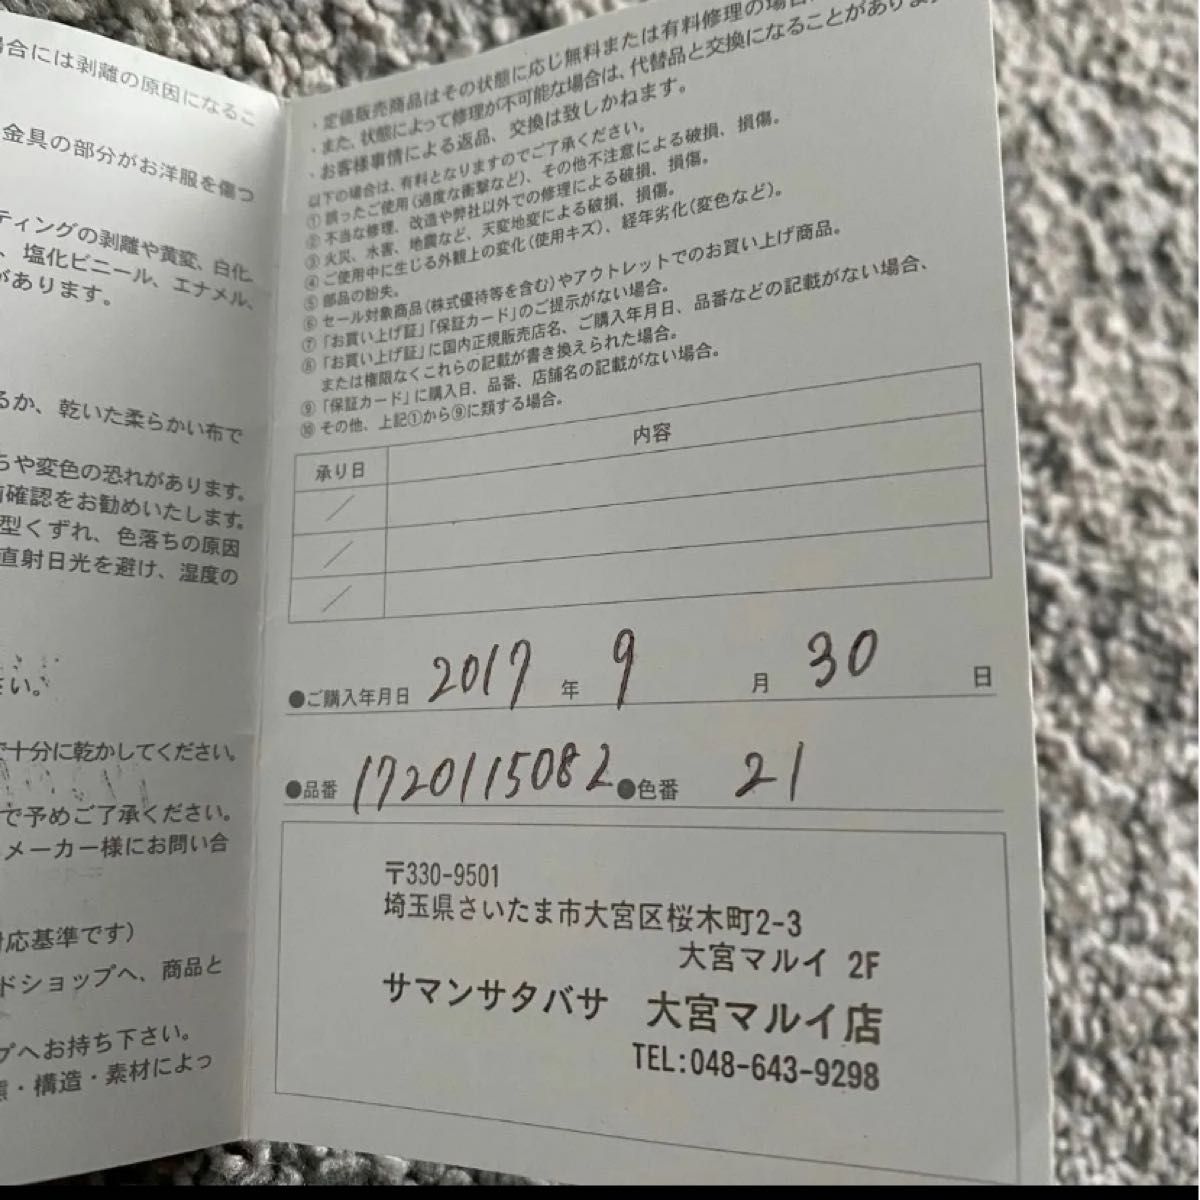 場合には剥離の原因になるこ
金具の部分がお洋服を傷つ
ティングの剥離や黄変、白化、
、塩化ビニール、エナメル、
があります。
るか、乾いた柔らかい布で
ちや変色の恐れがあります。
前確認をお勧めいたします。
型くずれ、色落ちの原因
直射日光を避け、湿度の
さい。
で十分に乾かしてください。
で予めご了承ください。
メーカー様にお問い合
対応基準です)
ドショップへ、商品と
プへお持ち下さい。
態・構造・素材によっ
・定価販売商品はその状態に応じ無料または有料修理の場合
・また、状態によって修理が不可能な場合は、代替品と交換になることがあります
・お客様事情による返品、交換は致しかねます。
以下の場合は、有料となりますのでご了承ください。
① 誤ったご使用(過度な衝撃など)、その他不注意による破損、損傷。
② 不当な修理、改造や弊社以外での修理による破損、損傷。
③ 火災、水害、地震など、天変地変による破損、損傷。
④ ご使用中に生じる外観上の変化(使用キズ)、経年劣化(変色など)。
⑤ 部品の紛失。
⑥ セール対象商品(株式優待等を含む)やアウトレットでのお買い上げ商品。
⑦「お買い上げ証」「保証カード」のご提示がない場合。
⑧「お買い上げ証」に国内正規販売店名、ご購入年月日、品番などの記載がない場合、
または権限なくこれらの記載が書き換えられた場合。
⑨「保証カード」に購入日、品番、店舗名の記載がない場合。
⑩ その他、上記①から⑨に類する場合。
承り日 内容
／
／
／
●ご購入年月日 2017 年 9 月 30 日
●品番 1720115082 ●色番 21
〒330-9501
埼玉県さいたま市大宮区桜木町2-3
大宮マルイ 2F
サマンサタバサ 大宮マルイ店
TEL:048-643-9298